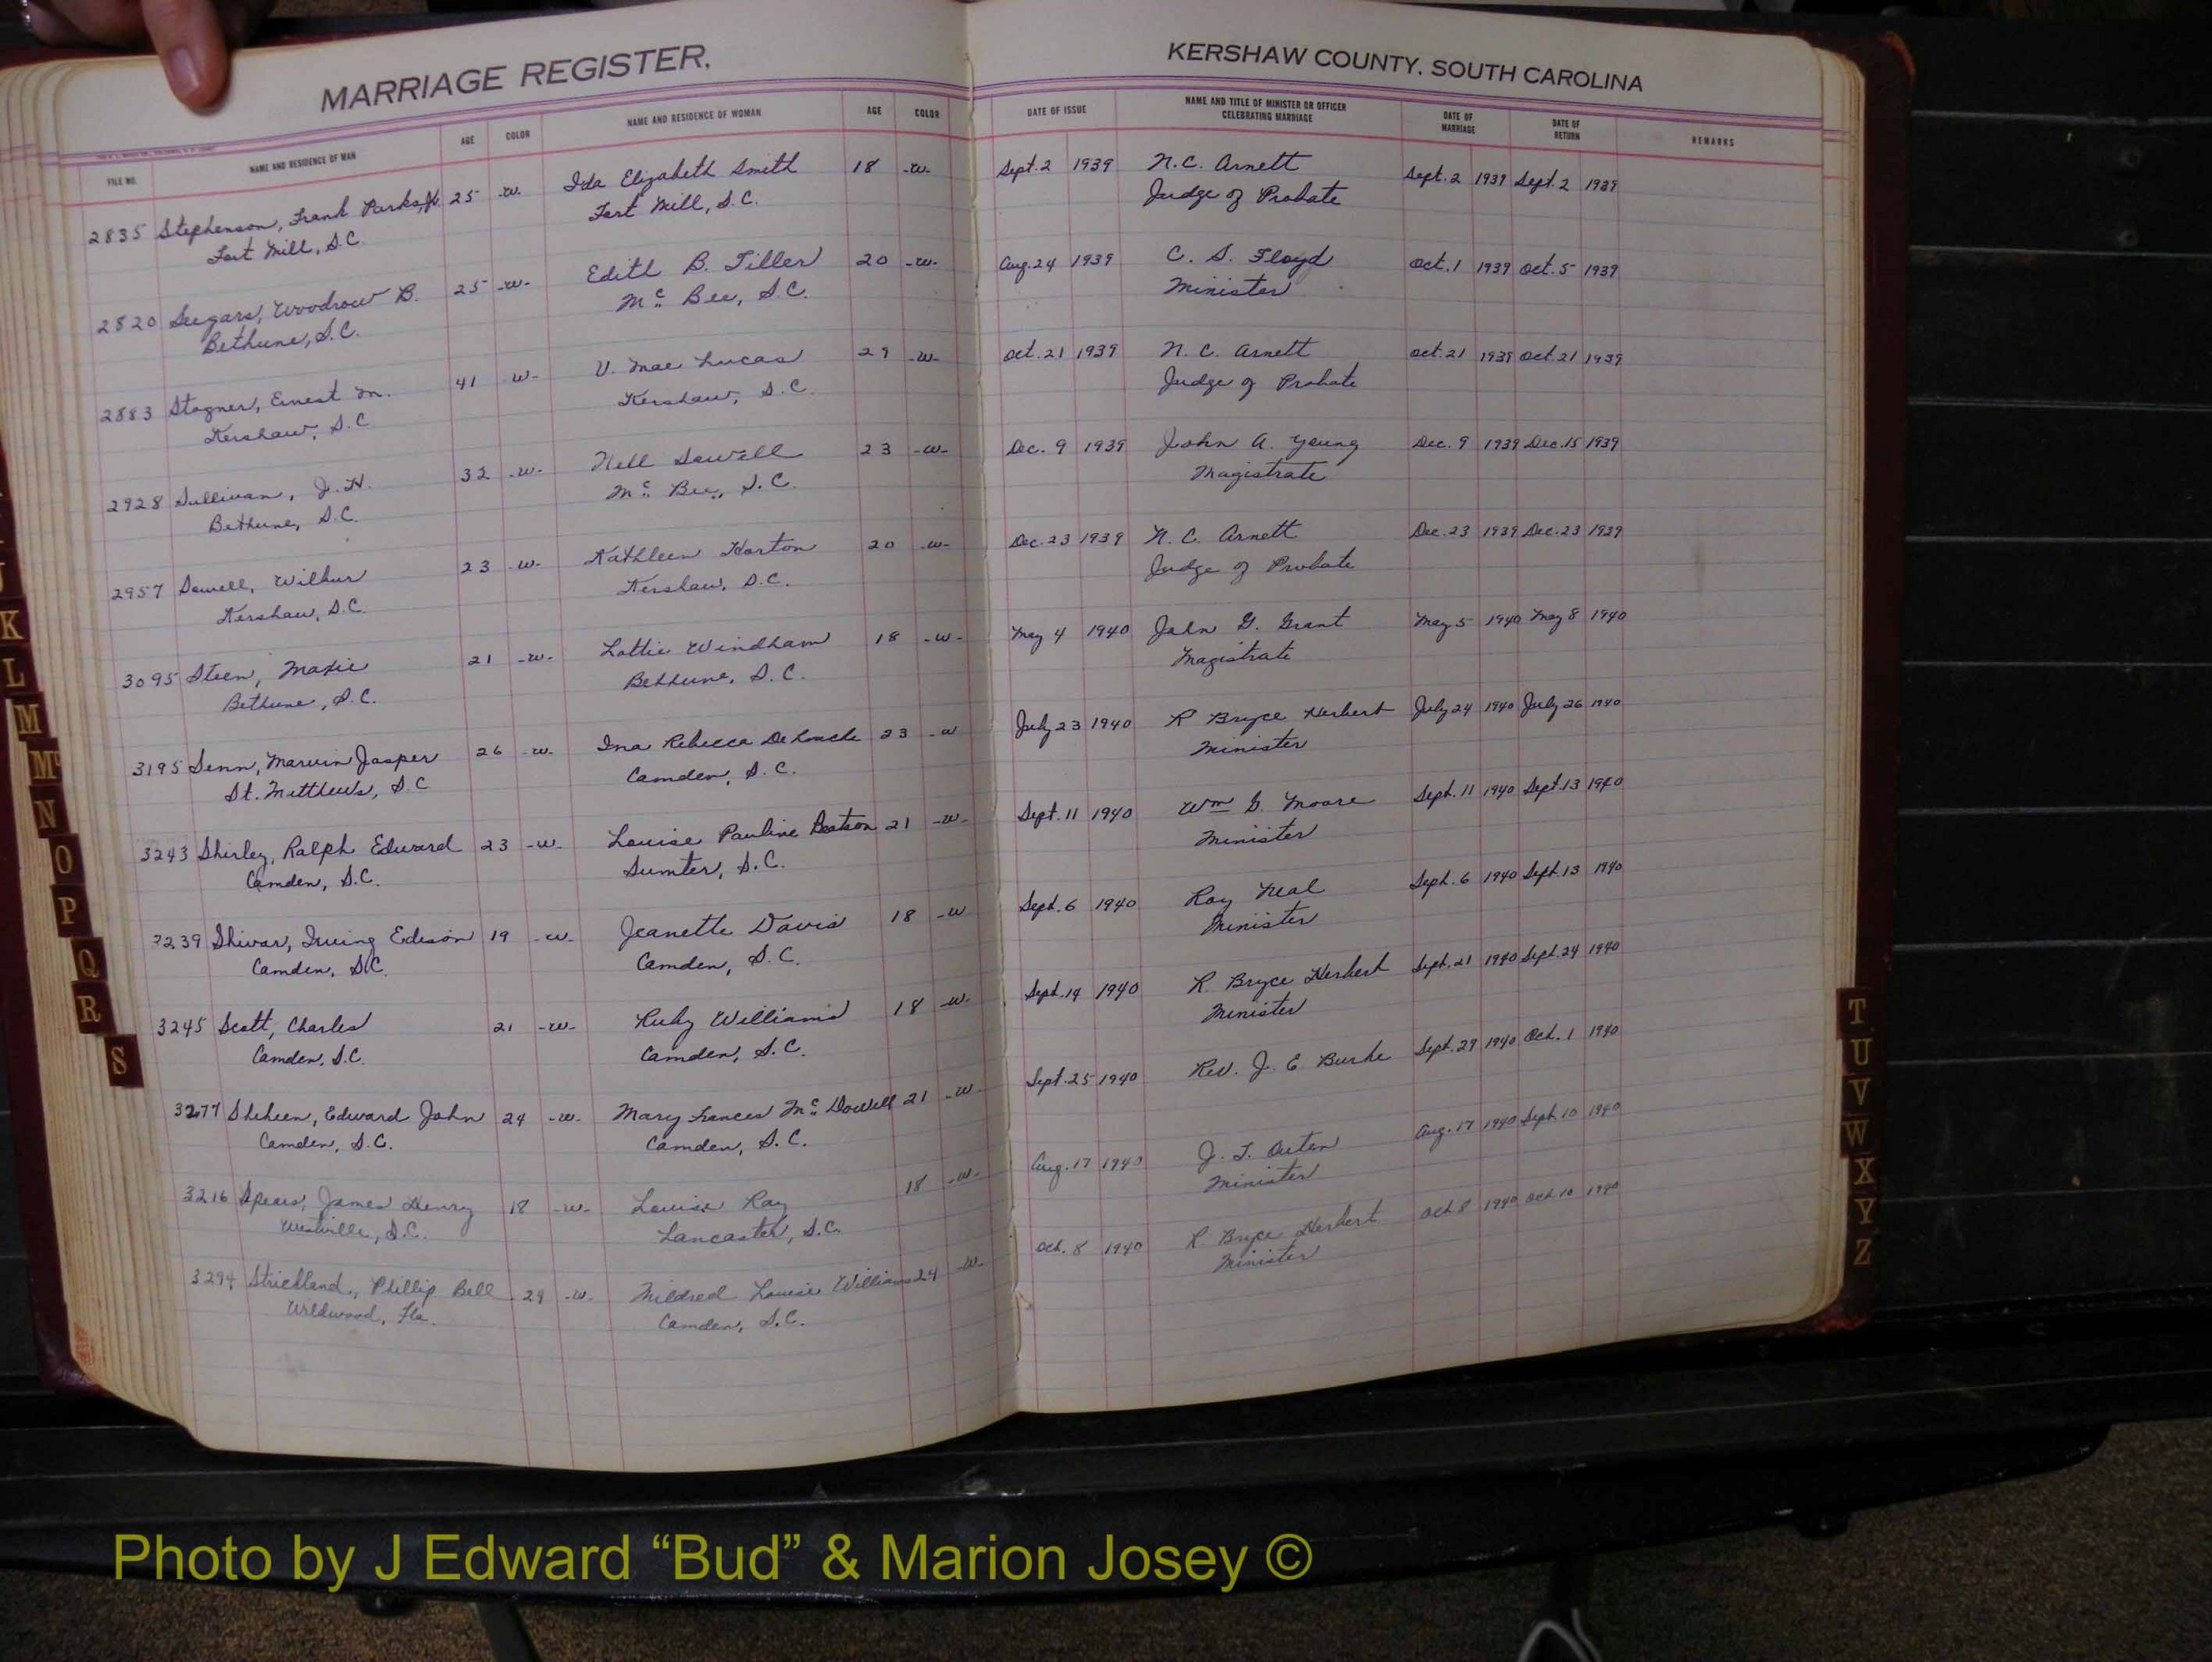 MARRIAGE REGISTER.
KERSHAW COUNTY, SOUTH CAROLINA
FILE NO. NAME AND RESIDENCE OF MAN AGE COLOR NAME AND RESIDENCE OF WOMAN AGE COLOR DATE OF ISSUE NAME AND TITLE OF MINISTER OR OFFICER CELEBRATING MARRIAGE DATE OF MARRIAGE DATE OF RETURN REMARKS
2835 Stephenson, Frank Parks, Jr. 25 -w- Ida Elizabeth Smith 18 -w- Sept. 2 1939 N.C. Arnett Sept. 2 1939 Sept. 2 1939
Fort Mill, S.C. Fort Mill, S.C. Judge of Probate
2820 Seegars, Woodrow B. 25 -w- Edith B. Tiller 20 -w- Aug. 24 1939 C. S. Floyd Oct. 1 1939 Oct. 5 1939
Bethune, S.C. Mc Bee, S.C. Minister
2883 Stogner, Ernest M. 41 w- V. Mae Lucas 29 -w- Oct. 21 1939 N. C. Arnett Oct. 21 1939 Oct. 21 1939
Kershaw, S.C. Kershaw, S.C. Judge of Probate
2928 Sullivan, J. H. 32 -w- Nell Sowell 23 -w- Dec. 9 1939 John A. Young Dec. 9 1939 Dec. 15 1939
Bethune, S.C. Mc Bee, S.C. Magistrate
2957 Sowell, Wilbur 23 -w- Kathleen Horton 20 -w- Dec. 23 1939 N. C. Arnett Dec. 23 1939 Dec. 23 1939
Kershaw, S.C. Kershaw, S.C. Judge of Probate
3095 Steen, Maxie 21 -w- Lottie Windham 18 -w- May 4 1940 John G. Grant May 5 1940 May 8 1940
Bethune, S.C. Bethune, S.C. Magistrate
3195 Senn, Marvin Jasper 26 -w- Ina Rebecca DeLoache 23 -w July 23 1940 R Bryce Herbert July 24 1940 July 26 1940
St. Matthews, S.C Camden, S.C. Minister
3243 Shirley, Ralph Edward 23 -w- Louise Pauline 21 -w- Sept. 11 1940 Wm G. Moore Sept. 11 1940 Sept. 13 1940
Camden, S.C. Sumter, S.C. Minister
3239 Shivar, Irving Edison 19 -w- Jeanette Davis 18 -w Sept. 6 1940 Roy Neal Sept. 6 1940 Sept. 13 1940
Camden, S.C. Camden, S.C. Minister
3245 Scott, Charles 21 -w- Ruby Williams 18 -w- Sept. 14 1940 R. Bryce Herbert Sept. 21 1940 Sept. 24 1940
Camden, S.C. Camden, S.C. Minister
3277 Sheheen, Edward John 24 -w- Mary Frances Mc Dowell 21 -w- Sept. 25 1940 Rev. J. E Burke Sept. 29 1940 Oct. 1 1940
Camden, S.C. Camden, S.C.
3216 Spears, James Henry 18 -w- Louise Ray 18 -w- Aug. 17 1940 J. T. Outen Aug. 17 1940 Sept. 10 1940
Westville, S.C. Lancaster, S.C. Minister
3294 Strickland, Phillip Bell 29 -w- Mildred Louise Williams 24 -w- Oct. 8 1940 R Bryce Herbert Oct. 8 1940 Oct. 10 1940
Wildwood, Fla. Camden, S.C. Minister
K
L
M
Mc
N
O
P
Q
R
S
T
U
V
W
X
Y
Z
Photo by J Edward “Bud” & Marion Josey ©